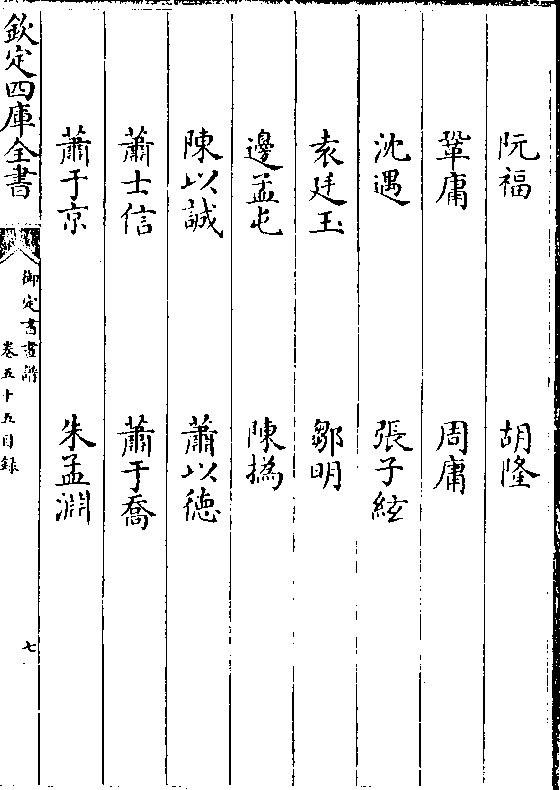 阮福 胡隆
鞏庸 周庸
沈遇 張子絃
袁廷玉 鄒明
邊孟屯 陳撝
陳以誠 蕭以徳
蕭士信 蕭于喬
蕭于京 朱孟淵
欽定四庫全書 御定書畫譜 卷五十五目録 七